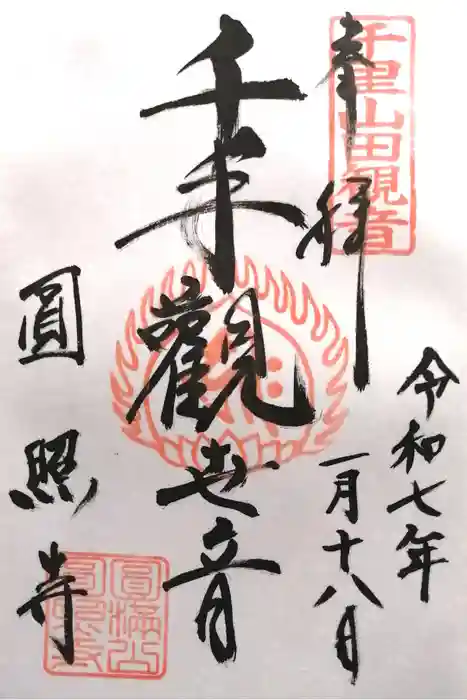 奉拝
千里山田観音
令和七年
一月十八日
千手觀世音
圓照寺